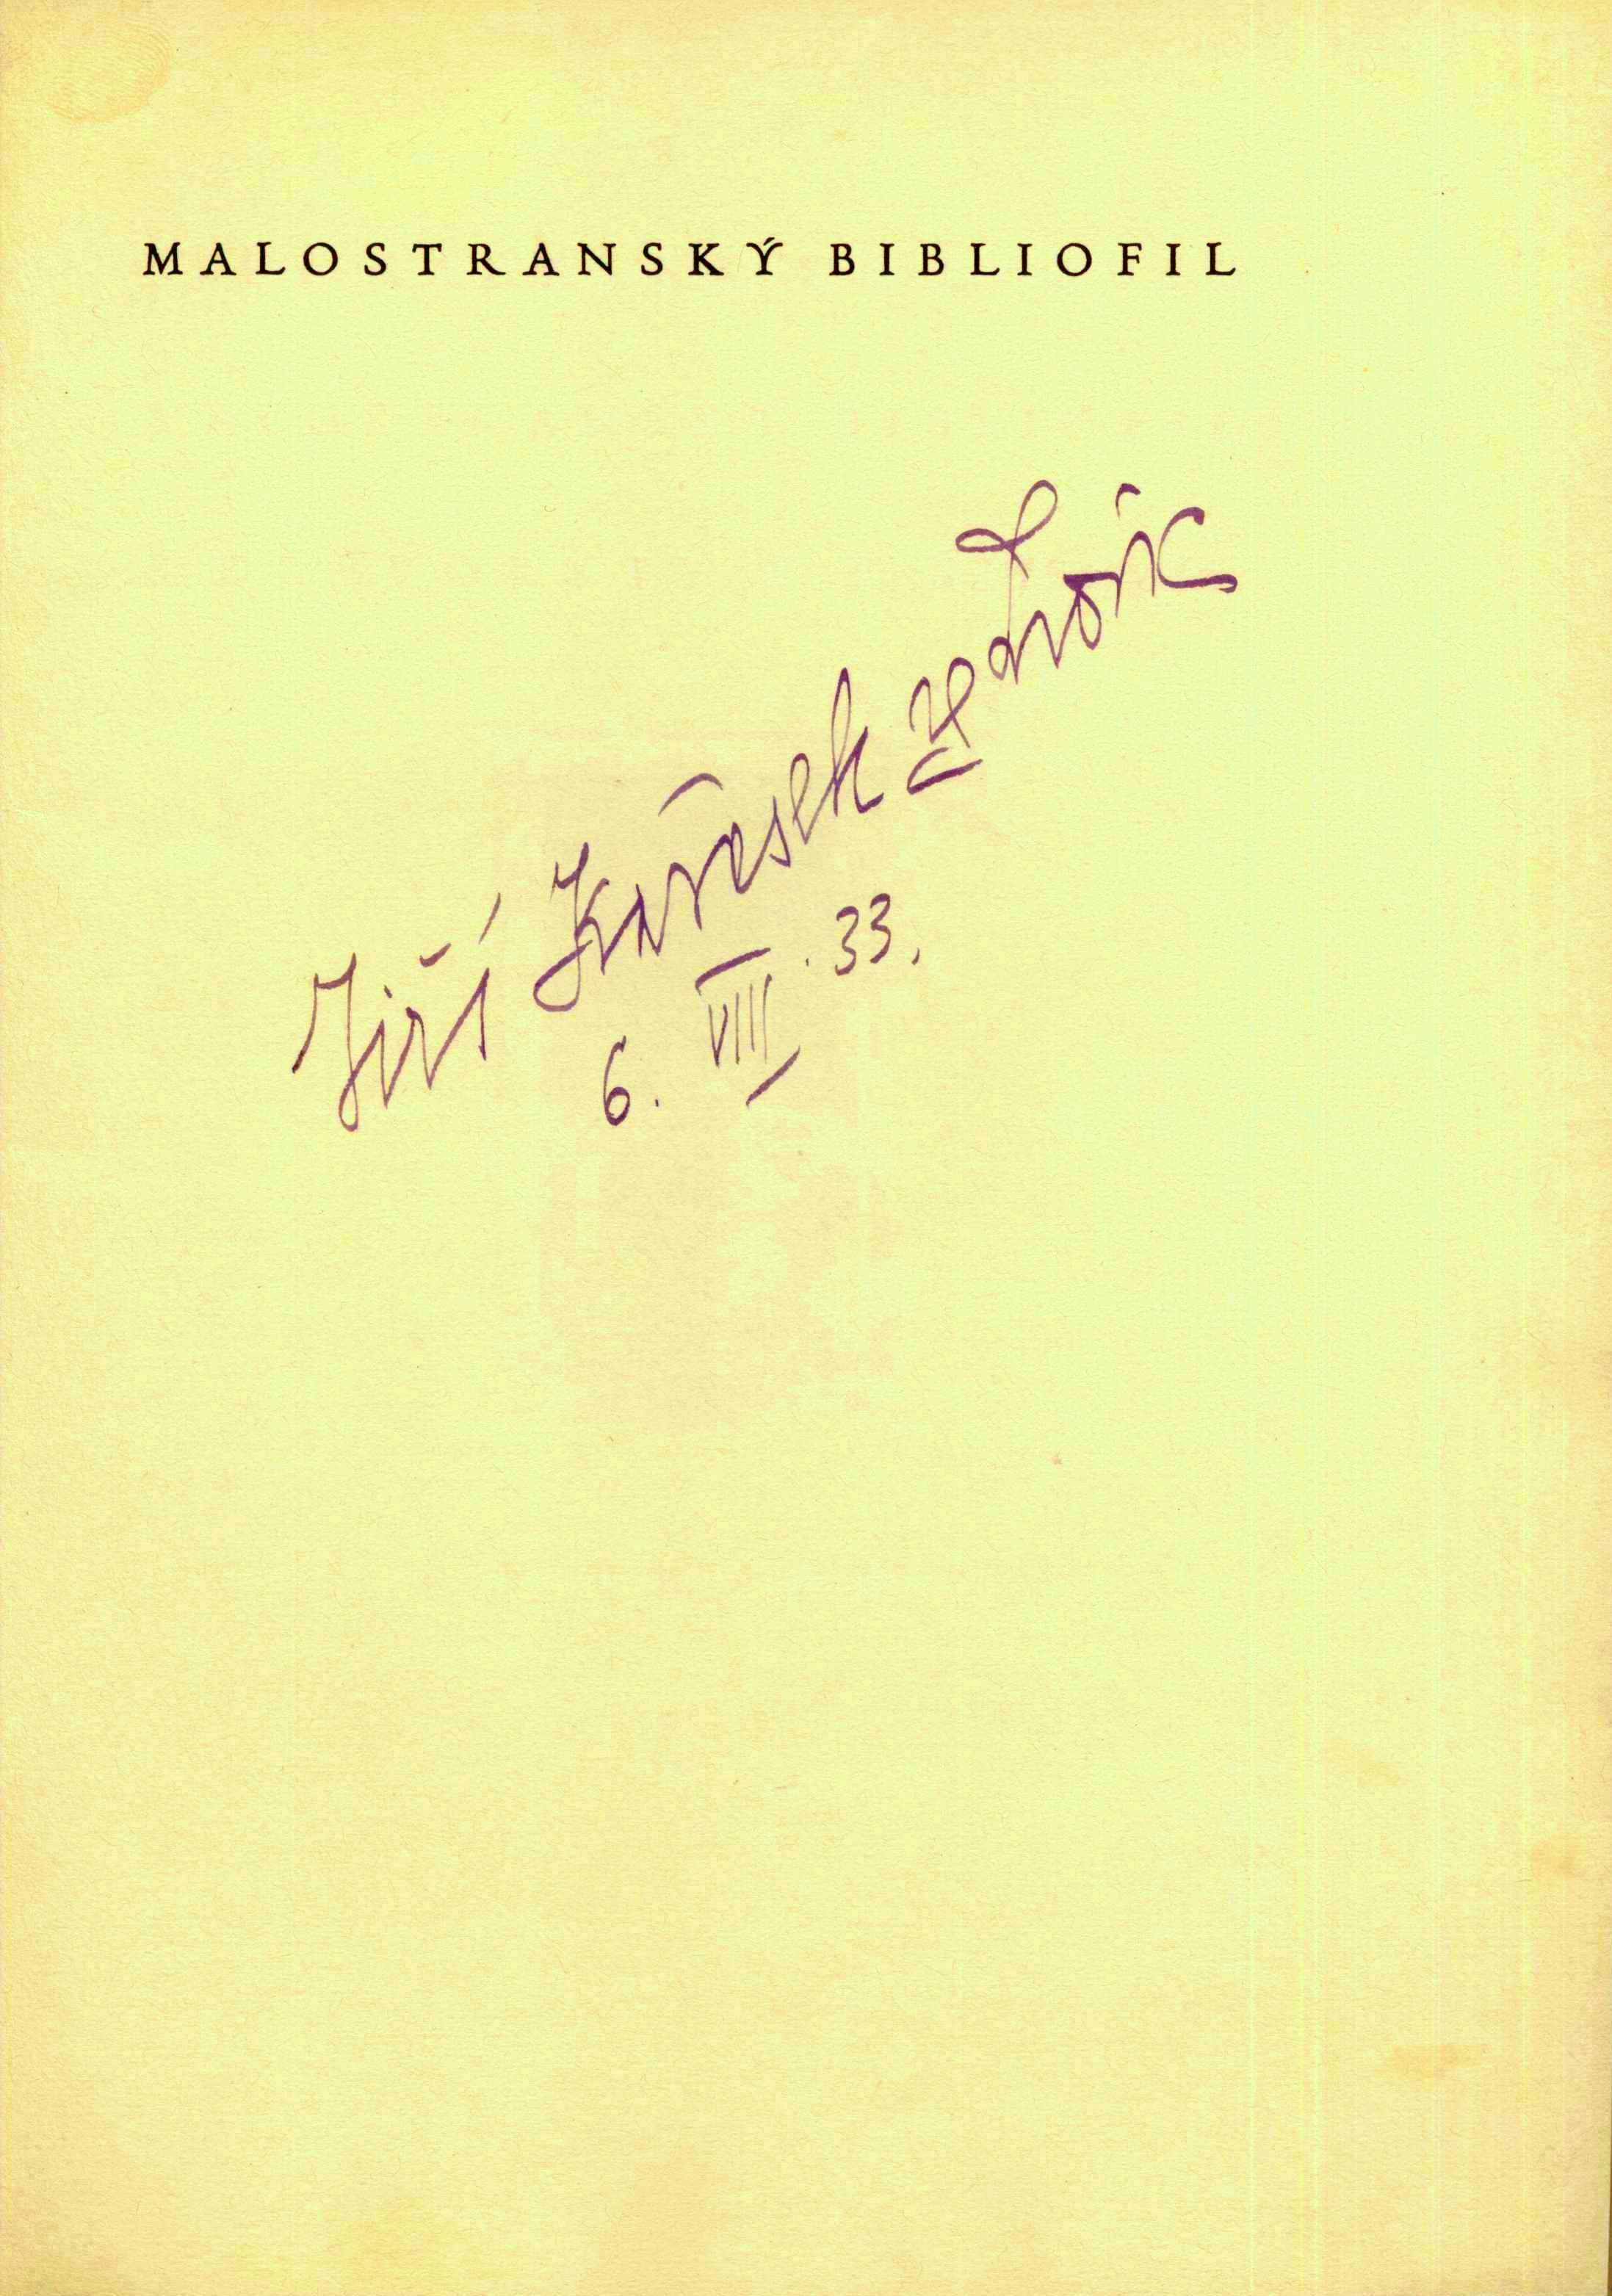 MALOSTRANSKÝ BIBLIOFIL
Jiří Karásek ze Lvovic
6. VIII. 33.